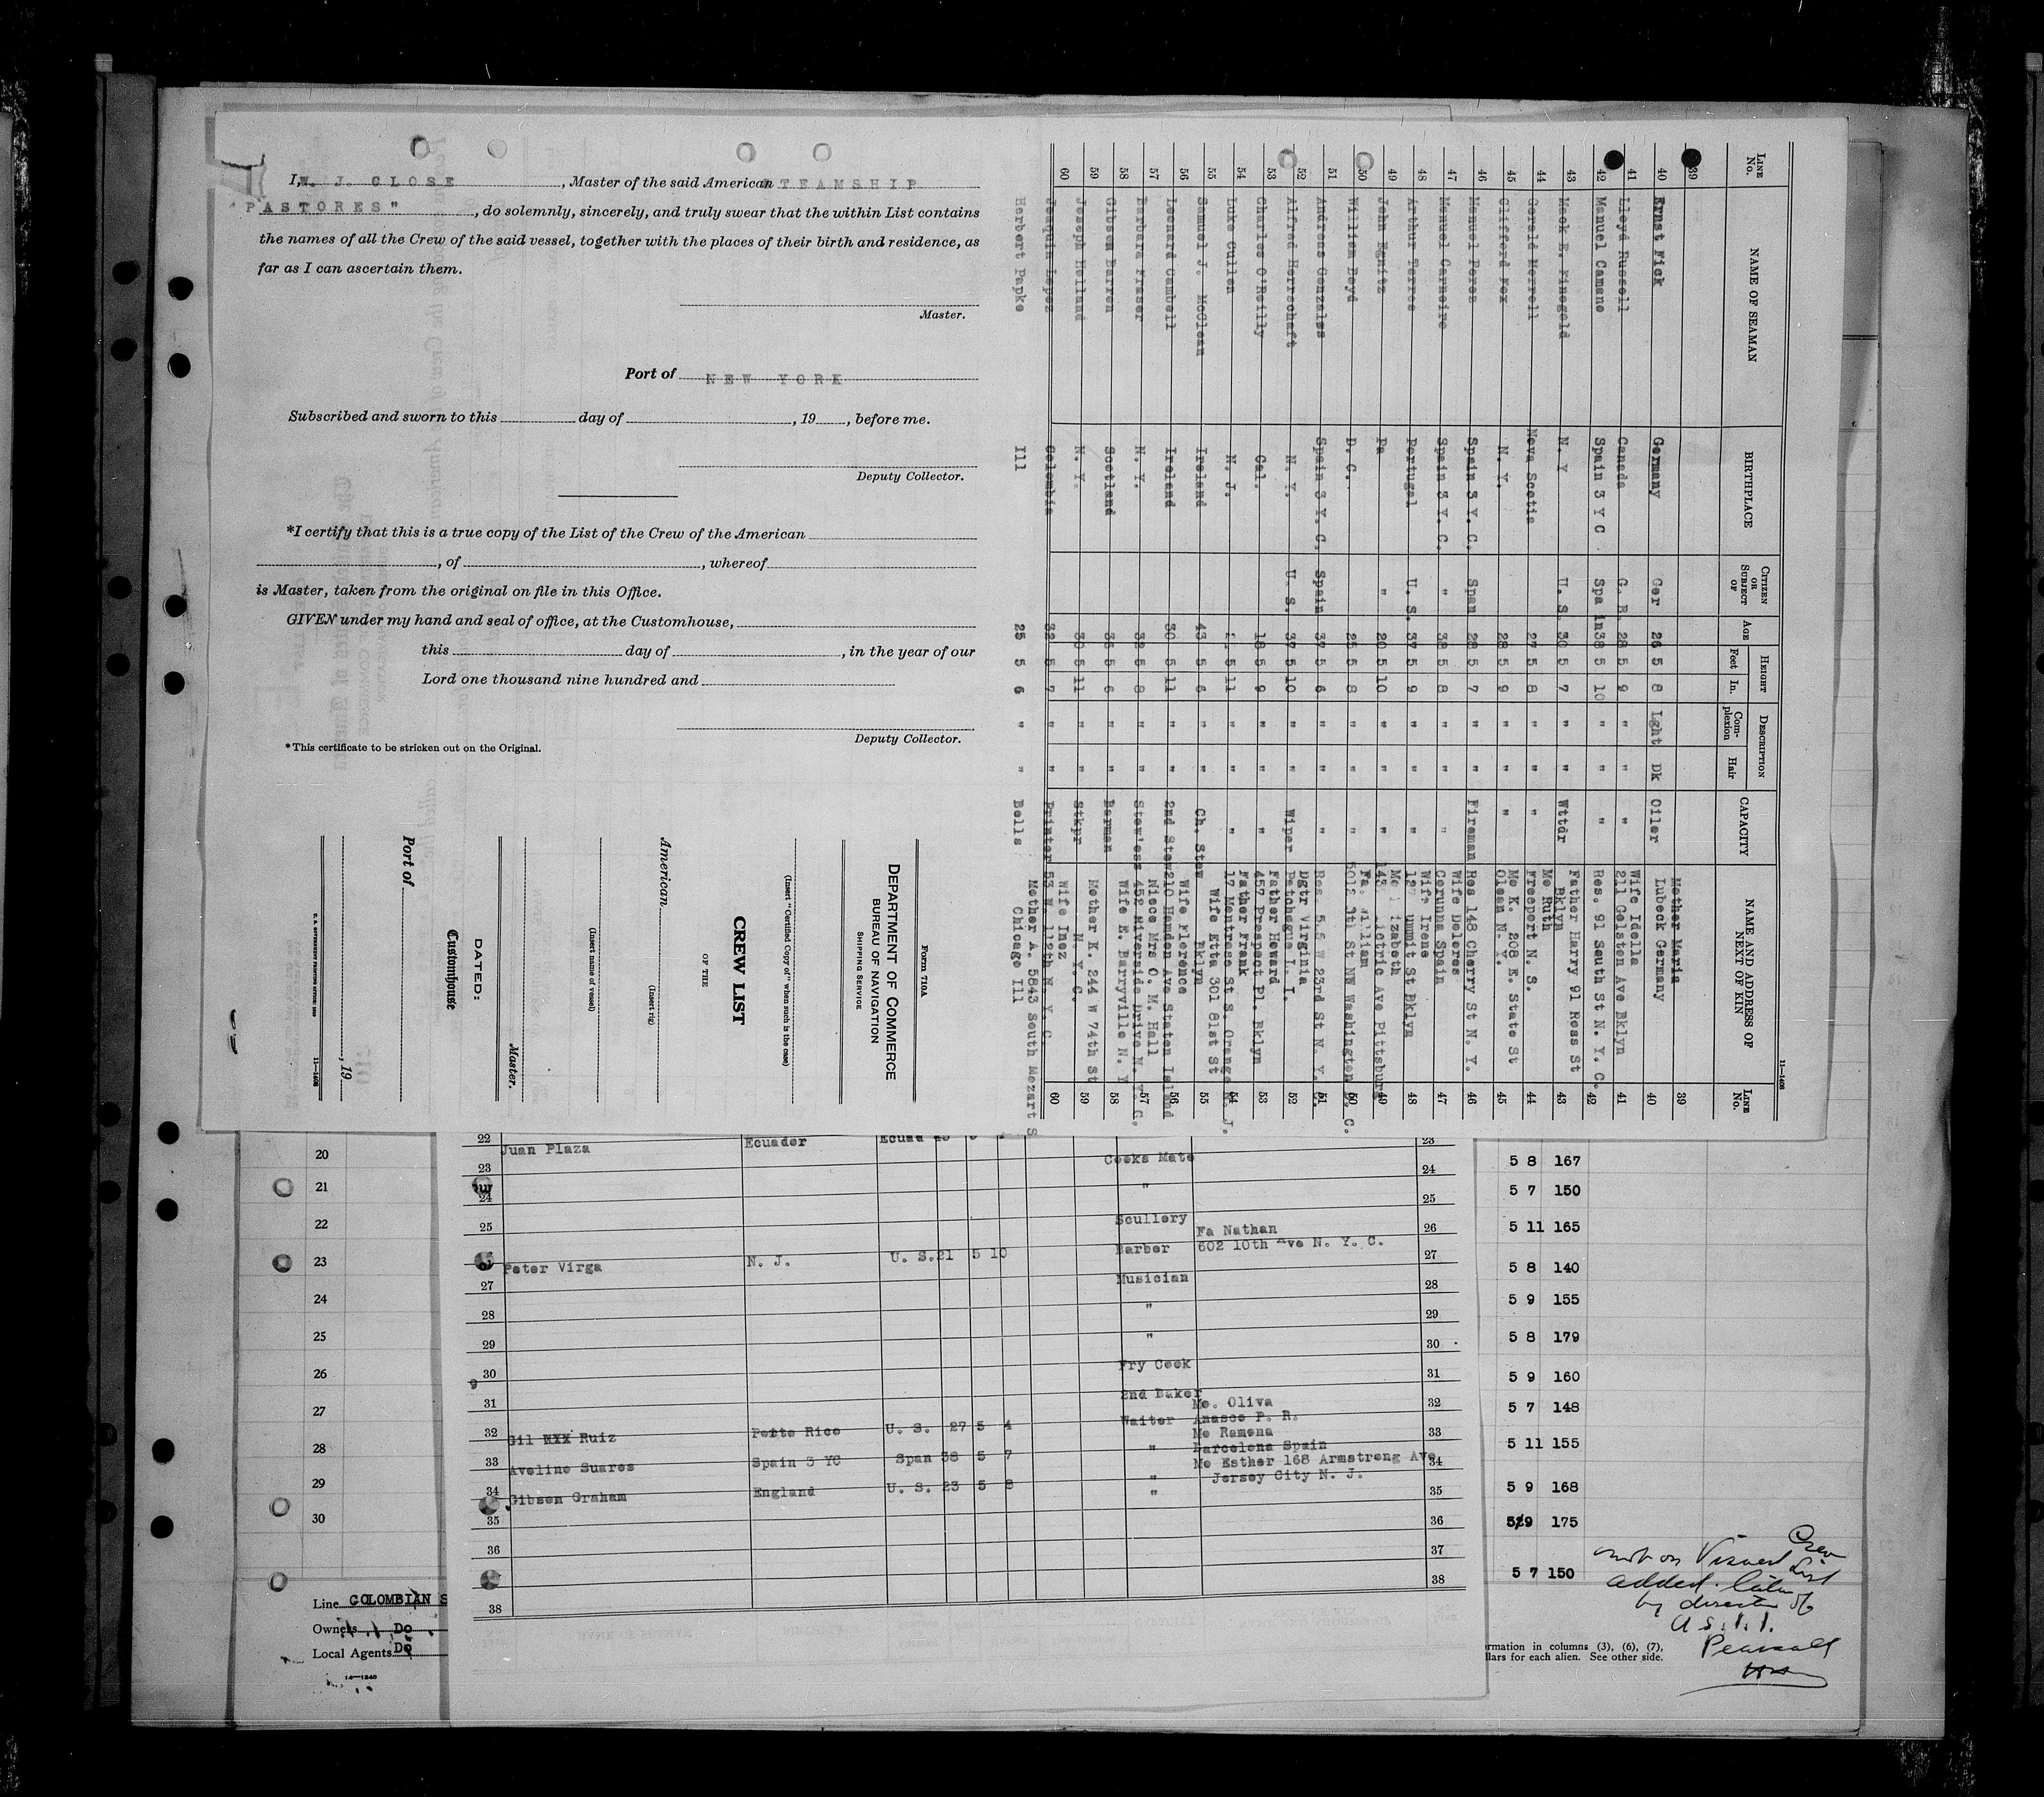 I, W. J. CLOSE, Master of the said American STEAMSHIP
"PASTORES", do solemnly, sincerely, and truly swear that the within List contains
the names of all the Crew of the said vessel, together with the places of their birth and residence, as
far as I can ascertain them.
Master.
Port of NEW YORK
Subscribed and sworn to this day of , 19 , before me.
Deputy Collector.
*I certify that this is a true copy of the List of the Crew of the American
, of , whereof
is Master, taken from the original on file in this Office.
GIVEN under my hand and seal of office, at the Customhouse,
this day of , in the year of our
Lord one thousand nine hundred and
Deputy Collector.
*This certificate to be stricken out on the Original.
Form 710A
DEPARTMENT OF COMMERCE
BUREAU OF NAVIGATION
SHIPPING SERVICE
(Insert "Certified Copy of" when such is the case)
CREW LIST
OF THE
American
(Insert rig)
(Insert name of vessel)
Master.
DATED:
Customhouse
Port of
, 19
11—1408
LINE No. NAME OF SEAMAN BIRTHPLACE CITIZEN OR SUBJECT OF AGE HEIGHT Feet In. DESCRIPTION Complexion Hair CAPACITY NAME AND ADDRESS OF NEXT OF KIN LINE No.
39 Mother Maria 39
40 Ernst Fick Germany Ger 26 5 8 Lght Dk Oiler Lubeck Germany 40
Wife Idella
41 Lloyd Russell Canada G. B. 28 5 9 " " " 211 Gelston Ave Bklyn 41
42 Manuel Camane Spain 3 Y C Spain 38 5 10 " " " Res. 91 South St N. Y. C. 42
Father Harry 91 Ross St
43 Mack E. Finegold N. Y U. S. 30 5 7 " " Wttdr Bklyn 43
Mo Ruth
44 Gerald Merrell Nova Scotia 27 5 8 " " " Freeport N. S. 44
Mo K. 208 E. State St
45 Clifford Fox N. Y. 28 5 9 " " " Olean N. Y. 45
46 Manuel Perez Spain 3 Y. C. Span 28 5 7 " " Fireman Res 148 Cherry St N. Y. 46
Wife Dolores
47 Manuel Carneire Spain 3 Y. C. " 38 5 8 " " " Corunna Spain 47
Wife Irene
48 Arthur Torres Portugal U. S. 37 5 9 " " " ummit St Bklyn 48
izabeth
49 John Egnitz Pa " 20 5 10 " " " Ave Pittsburg 49
Fa. William
50 William Boyd D. C. 25 5 8 " " " St NW Washington D. C. 50
51 Andreas Gonzales Spain 3 Y. C. Spain 37 5 6 " " " Res. W 23rd St N. Y. C. 51
Dgtr Virginia
52 Alfred Herrschaft N. Y. U. S. 37 5 10 " " Wiper Patchogue L. I. 52
Father Howard
53 Charles O'Reilly Cal. 18 5 9 " " " 457 Prospect Pl. Bklyn 53
Father Frank
54 Luke Cullen N. J. 5 11 " " " 17 Montrose St S. Orange N. J. 54
Wife Etta 301 81st St
55 Samuel J. McClean Ireland 43 5 6 " " Ch. Stew Bklyn 55
Wife Florence
56 Leonard Cambell Ireland 30 5 11 " " 2nd Stew 210 Hamden Ave Staten Island 56
Niece Mrs O. M. Hall
57 Barbara Fraser N. Y. 32 5 8 " " Stew'ess 452 Riverside Drive N. Y. C. 57
58 Gibson Barren Scotland 35 5 6 " " Barman Wife E. Barryville N. Y 58
Mother K. 244 W 74th St
59 Joseph Heiland N. Y. 30 5 11 " " Stkpr N. Y. C. 59
Wife Inez
60 Joaquin Lopez Colombia 32 5 7 " " Printer 53 W. 112th N. Y. C. 60
Mother A. 5843 South Mozart S
Herbert Papke Ill 25 5 6 " " Bells Chicago Ill
22 Juan Plaza Ecuador Ecuad 23
23 Cooks Mate 24
24 " 25
25 Scullery 26
Fa Nathan
Peter Virga N. J. U. S. 21 5 10 Barber 602 10th Ave N. Y. C. 27
27 Musician 28
28 " 29
29 " 30
30 Fry Cook 31
31 2nd Baker 32
Mo. Oliva
32 Gil Ruiz Porto Rico U. S. 27 5 4 Waiter Anasco P. R. 33
Mo Ramona
33 Avelino Suares Spain 3 YC Span 38 5 7 " Barcelona Spain 34
Mo Esther 168 Armstrong Ave
34 Gibson Graham England U. S. 23 5 8 " Jersey City N. J.
35 " 35
36 36
37
38 38
20 5 8 167
21 5 7 150
22 5 11 165
23 5 8 140
24 5 9 155
25 5 8 179
26 5 9 160
27 5 7 148
28 5 11 155
29 5 9 168
30 5 9 175
5 7 150
Crew
not on Visaed List
added later
by direction of
A S. I. I.
Pearsall
Line COLOMBIAN S
Owners Do
Local Agents Do
14—1240
rmation in columns (3), (6), (7),
llars for each alien. See other side.